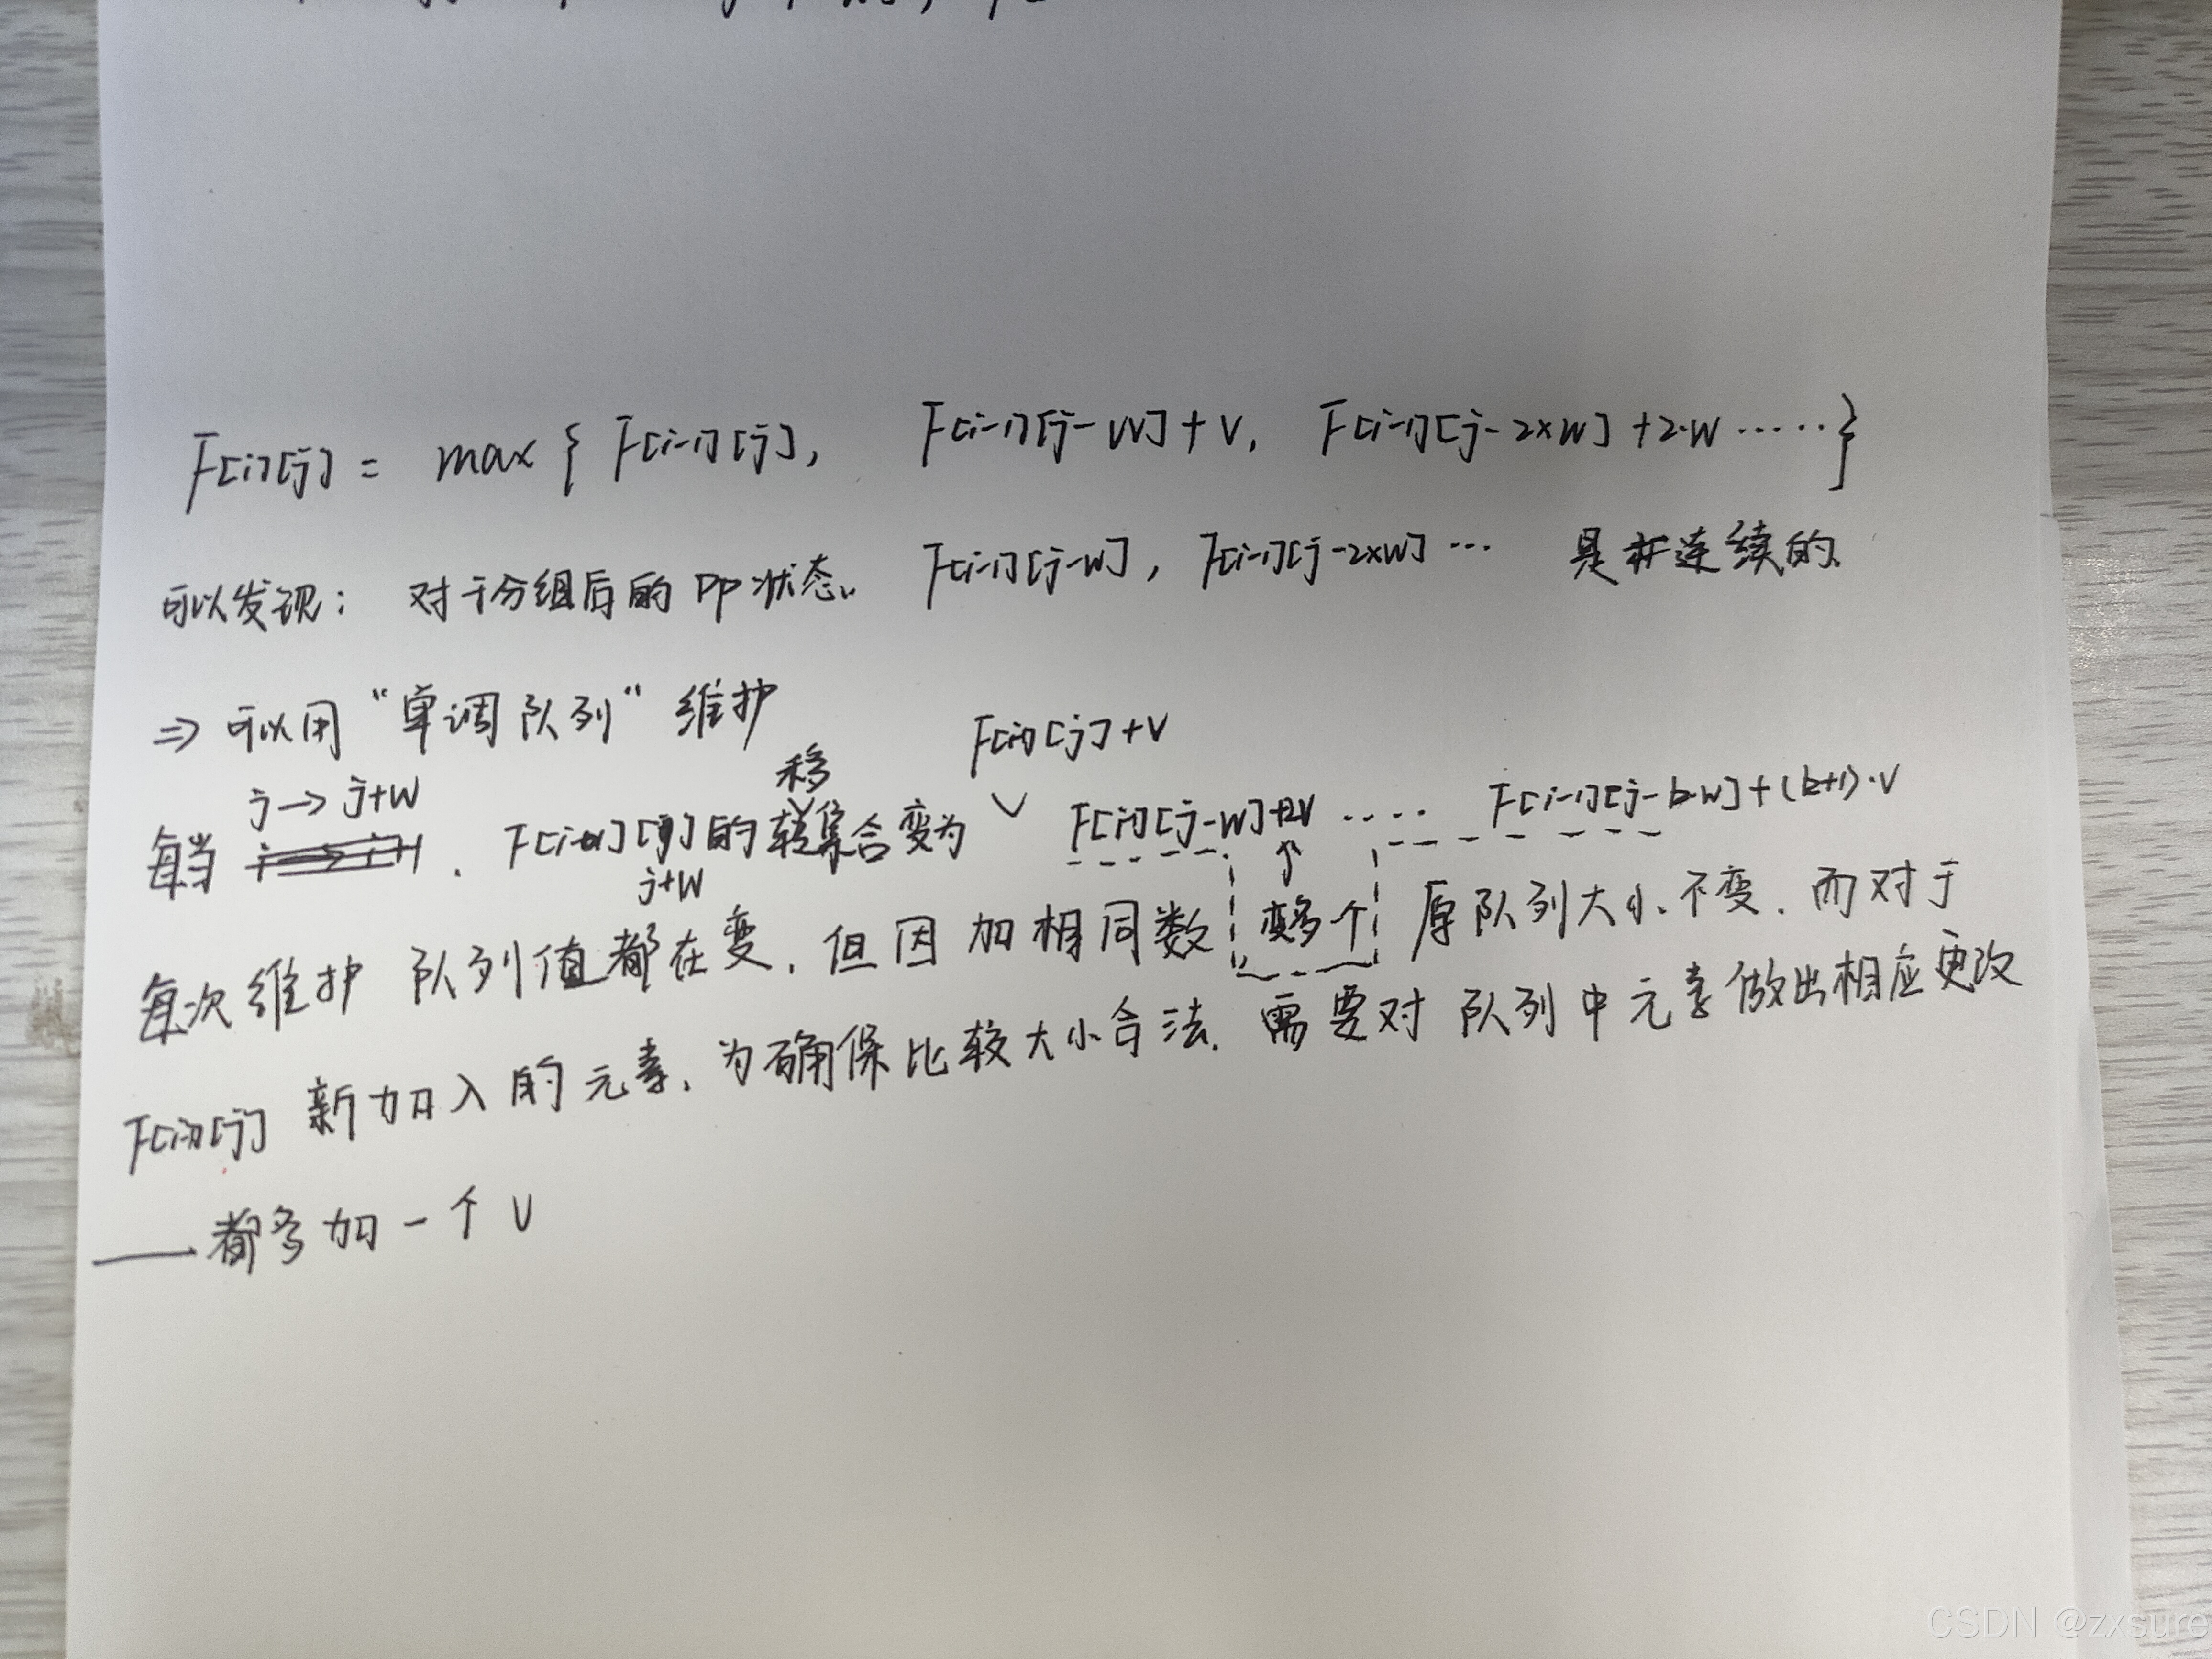 F[i][j] = max { F[i-1][j], F[i-1][j-W]+V, F[i-1][j-2×W]+2·W ······}
可以发现： 对于分组后的DP状态. F[i-1][j-W], F[i-1][j-2×W] ··· 是非连续的.
⇒ 可以用“单调队列”维护
每当 j→j+W . F[i][j+W] 的转移集合变为 F[i-1][j]+V F[i-1][j-W]+2V ···· F[i-1][j-k·W]+(k+1)·V
每次维护 队列值都在变, 但因加相同数 变多个 原队列大小不变. 而对于
F[i-1][j] 新加入的元素, 为确保比较大小合法. 需要对队列中元素做出相应更改
——都多加一个V
CSDN @zxsure